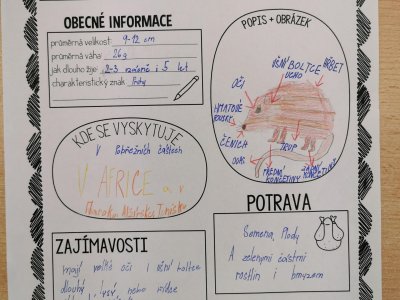 OBECNÉ INFORMACE
průměrná velikost: 9-12 cm
průměrná váha: 26g
jak dlouho žije: 2-3 vzácně i 5 let
charakteristický znak:
POPIS + OBRÁZEK
UŠNÍ BOLTCE
UCHO
HŘBET
OČI
HMATOVÉ
ČENICH
OCAS
TRUP
PŘEDNÍ
KONČETINY
ZADNÍ
KONČETINY
KDE SE VYSKYTUJE
V Pobřežních částech
V AFRICE a v
Maroku, Alžírsku, Tunisku
POTRAVA
Semena, Plody
A zelenými částmi
rostlin i hmyzem
ZAJÍMAVOSTI
mají velké oči i ušní boltce
dlouhý, lysý nebo řídce